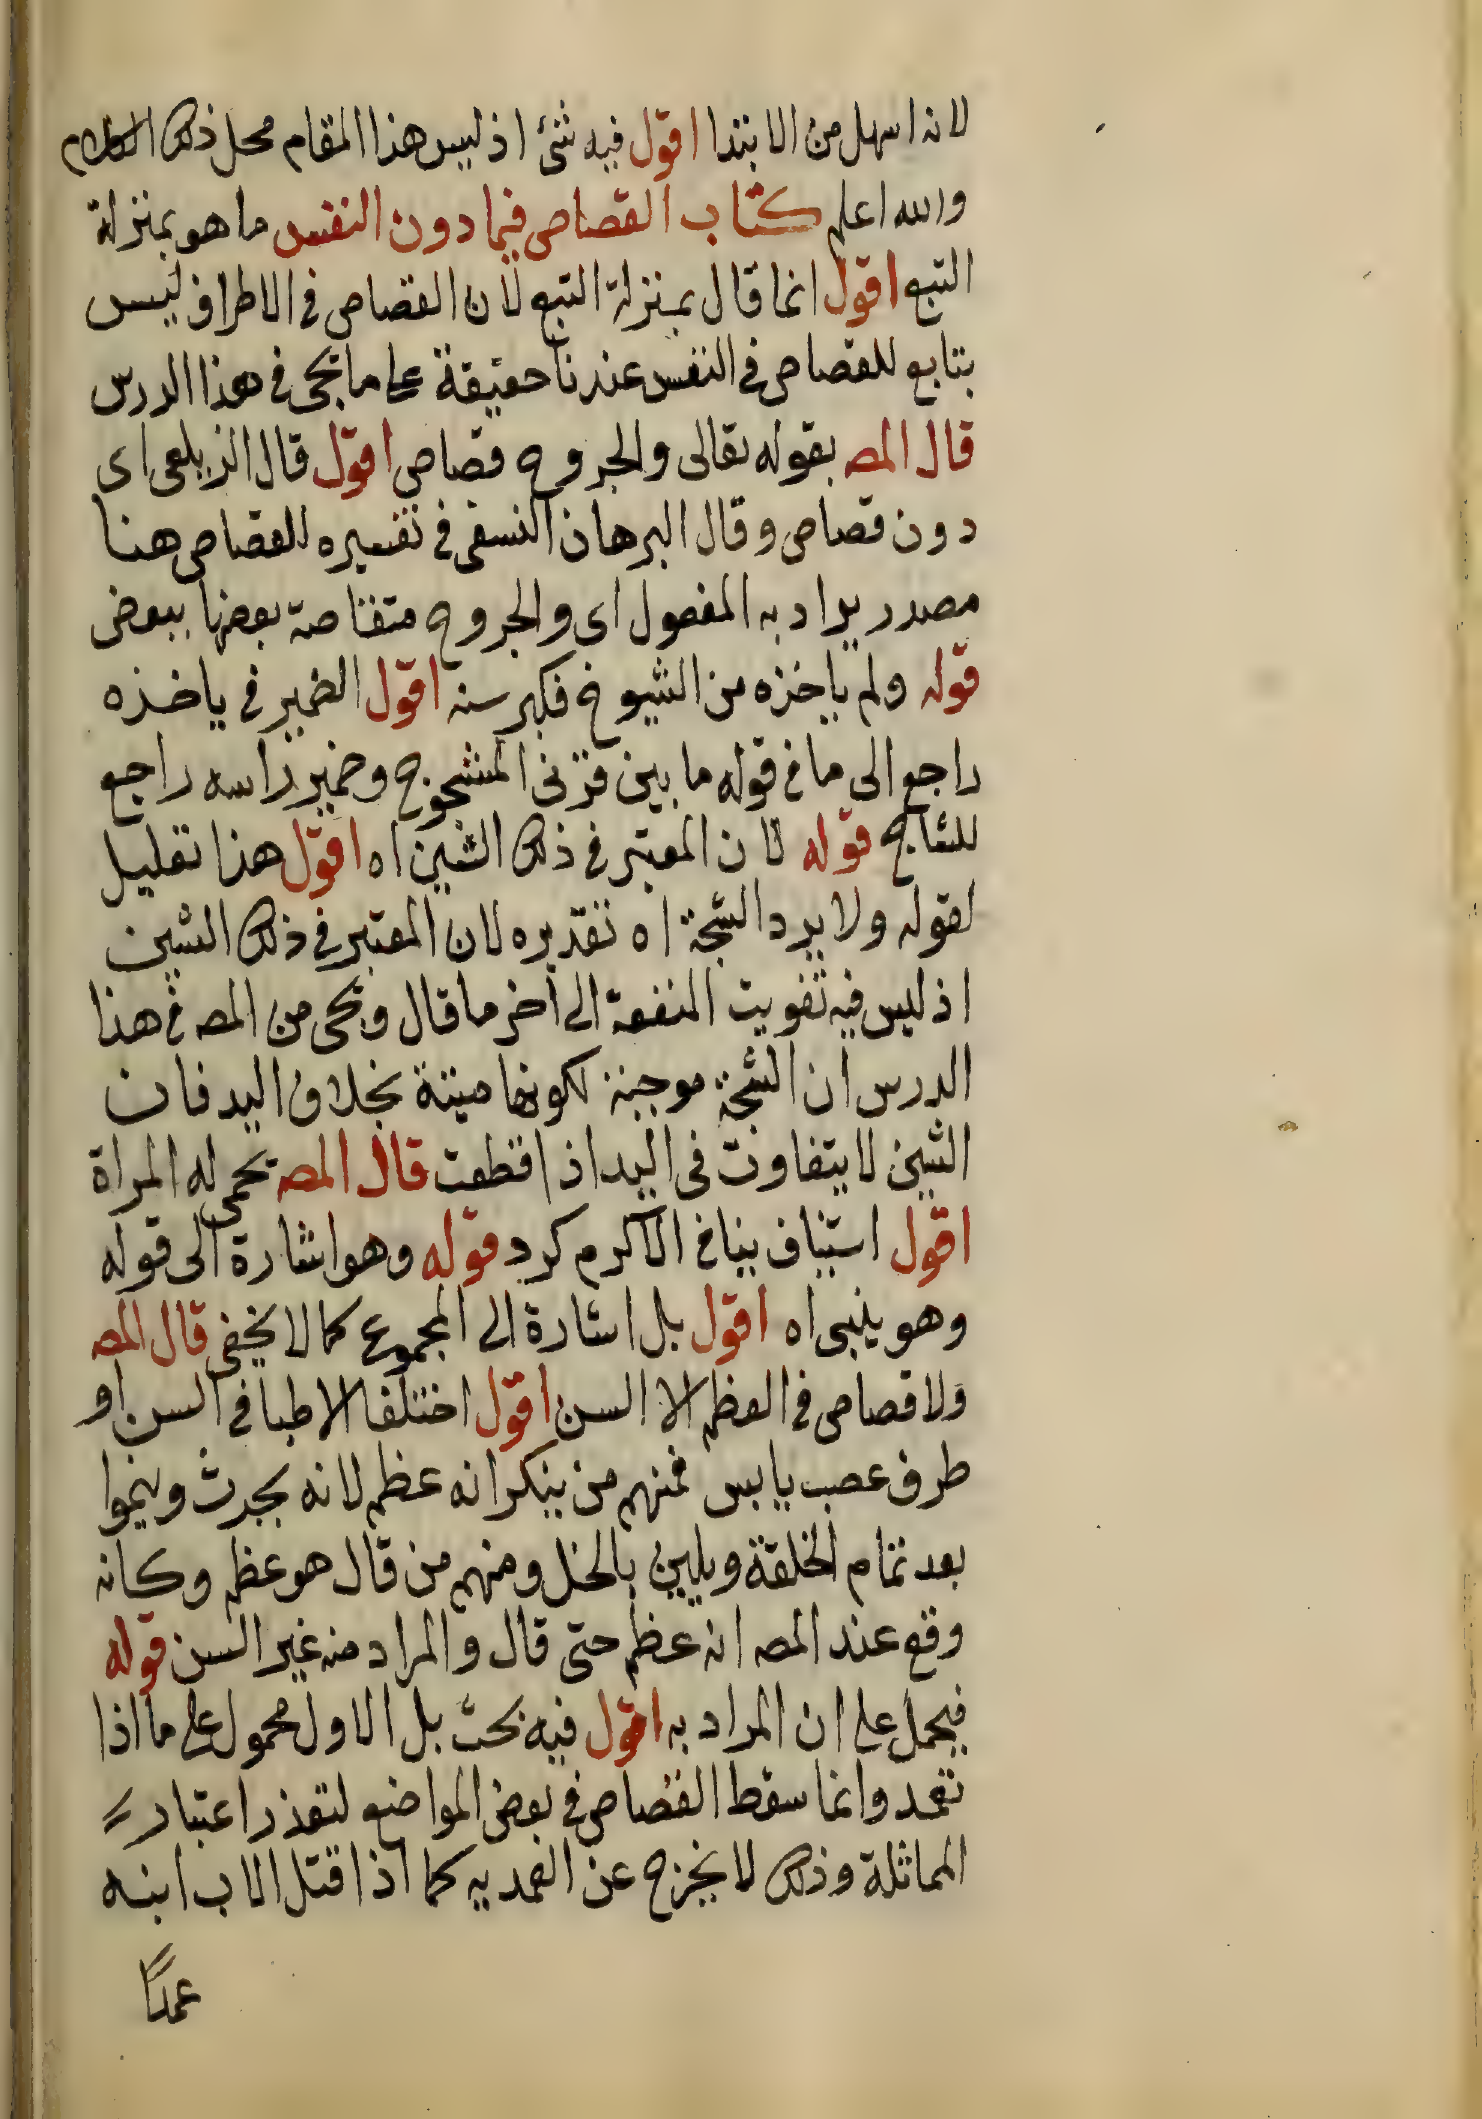 لانه اسهل من الابتدا اقول فيه شئ اذ ليس هذا المقام محل ذلك الكلام
والله اعلم كتاب القصاص فيما دون النفس ما هو بمنزلة
التبع اقول انما قال بمنزلة التبع لان القصاص في الاطراف ليس
بتابع للقصاص في النفس عندنا حقيقة على ما يجى في هذا الدرس
قال المص بقوله تعالى والجروح قصاص اقول قال الزيلعى اى
دون قصاص وقال البرهان النسفى في تفسيره للقصاص هنا
مصدر يراد به المفعول اى والجروح متقاصة بعضها ببعض
قوله ولم ياخذه من الشيوخ فكبر سنه اقول الضمير في ياخذه
راجع الى ما في قوله ما بين قرنى المشجوج وضمير راسه راجع
للشاج قوله لان المعتبر في ذلك الشين اه اقول هذا تعليل
لقوله ولا يرد الشجة اه تقديره لان المعتبر في ذلك الشين
اذ ليس فيه تفويت المنفعة الى اخر ما قال ويجى من المص في هذا
الدرس ان الشجة موجبة لكونها ميتة بخلاف اليد فان
الشين لا يتفاوت فى اليد اذ اقطعت قال المص تحمى له المراة
اقول استيناف بيناخ الاكرم كرد قوله وهو اشارة الى قوله
وهو ينبى اه اقول بل اشارة الى المجموع كما لا يخفى قال المص
ولا قصاص في العظم الا السن اقول اختلفا الاطبا في السن او
طرف عصب يابس فمنهم من ينكر انه عظم لانه يحدث وينموا
بعد تمام الخلقة ويلين بالخل ومنهم من قال هو عظم وكانه
وقع عند المص انه عظم حتى قال والمراد منه غير السن قوله
فيحمل على ان المراد به اقول فيه بحث بل الاول محمول على ما اذا
تعمد وانما سقط القصاص في بعض المواضع لتعذر اعتبار
المماثلة وذلك لا يخرج عن العمديه كما اذا قتل الاب ابنه
عمدًا